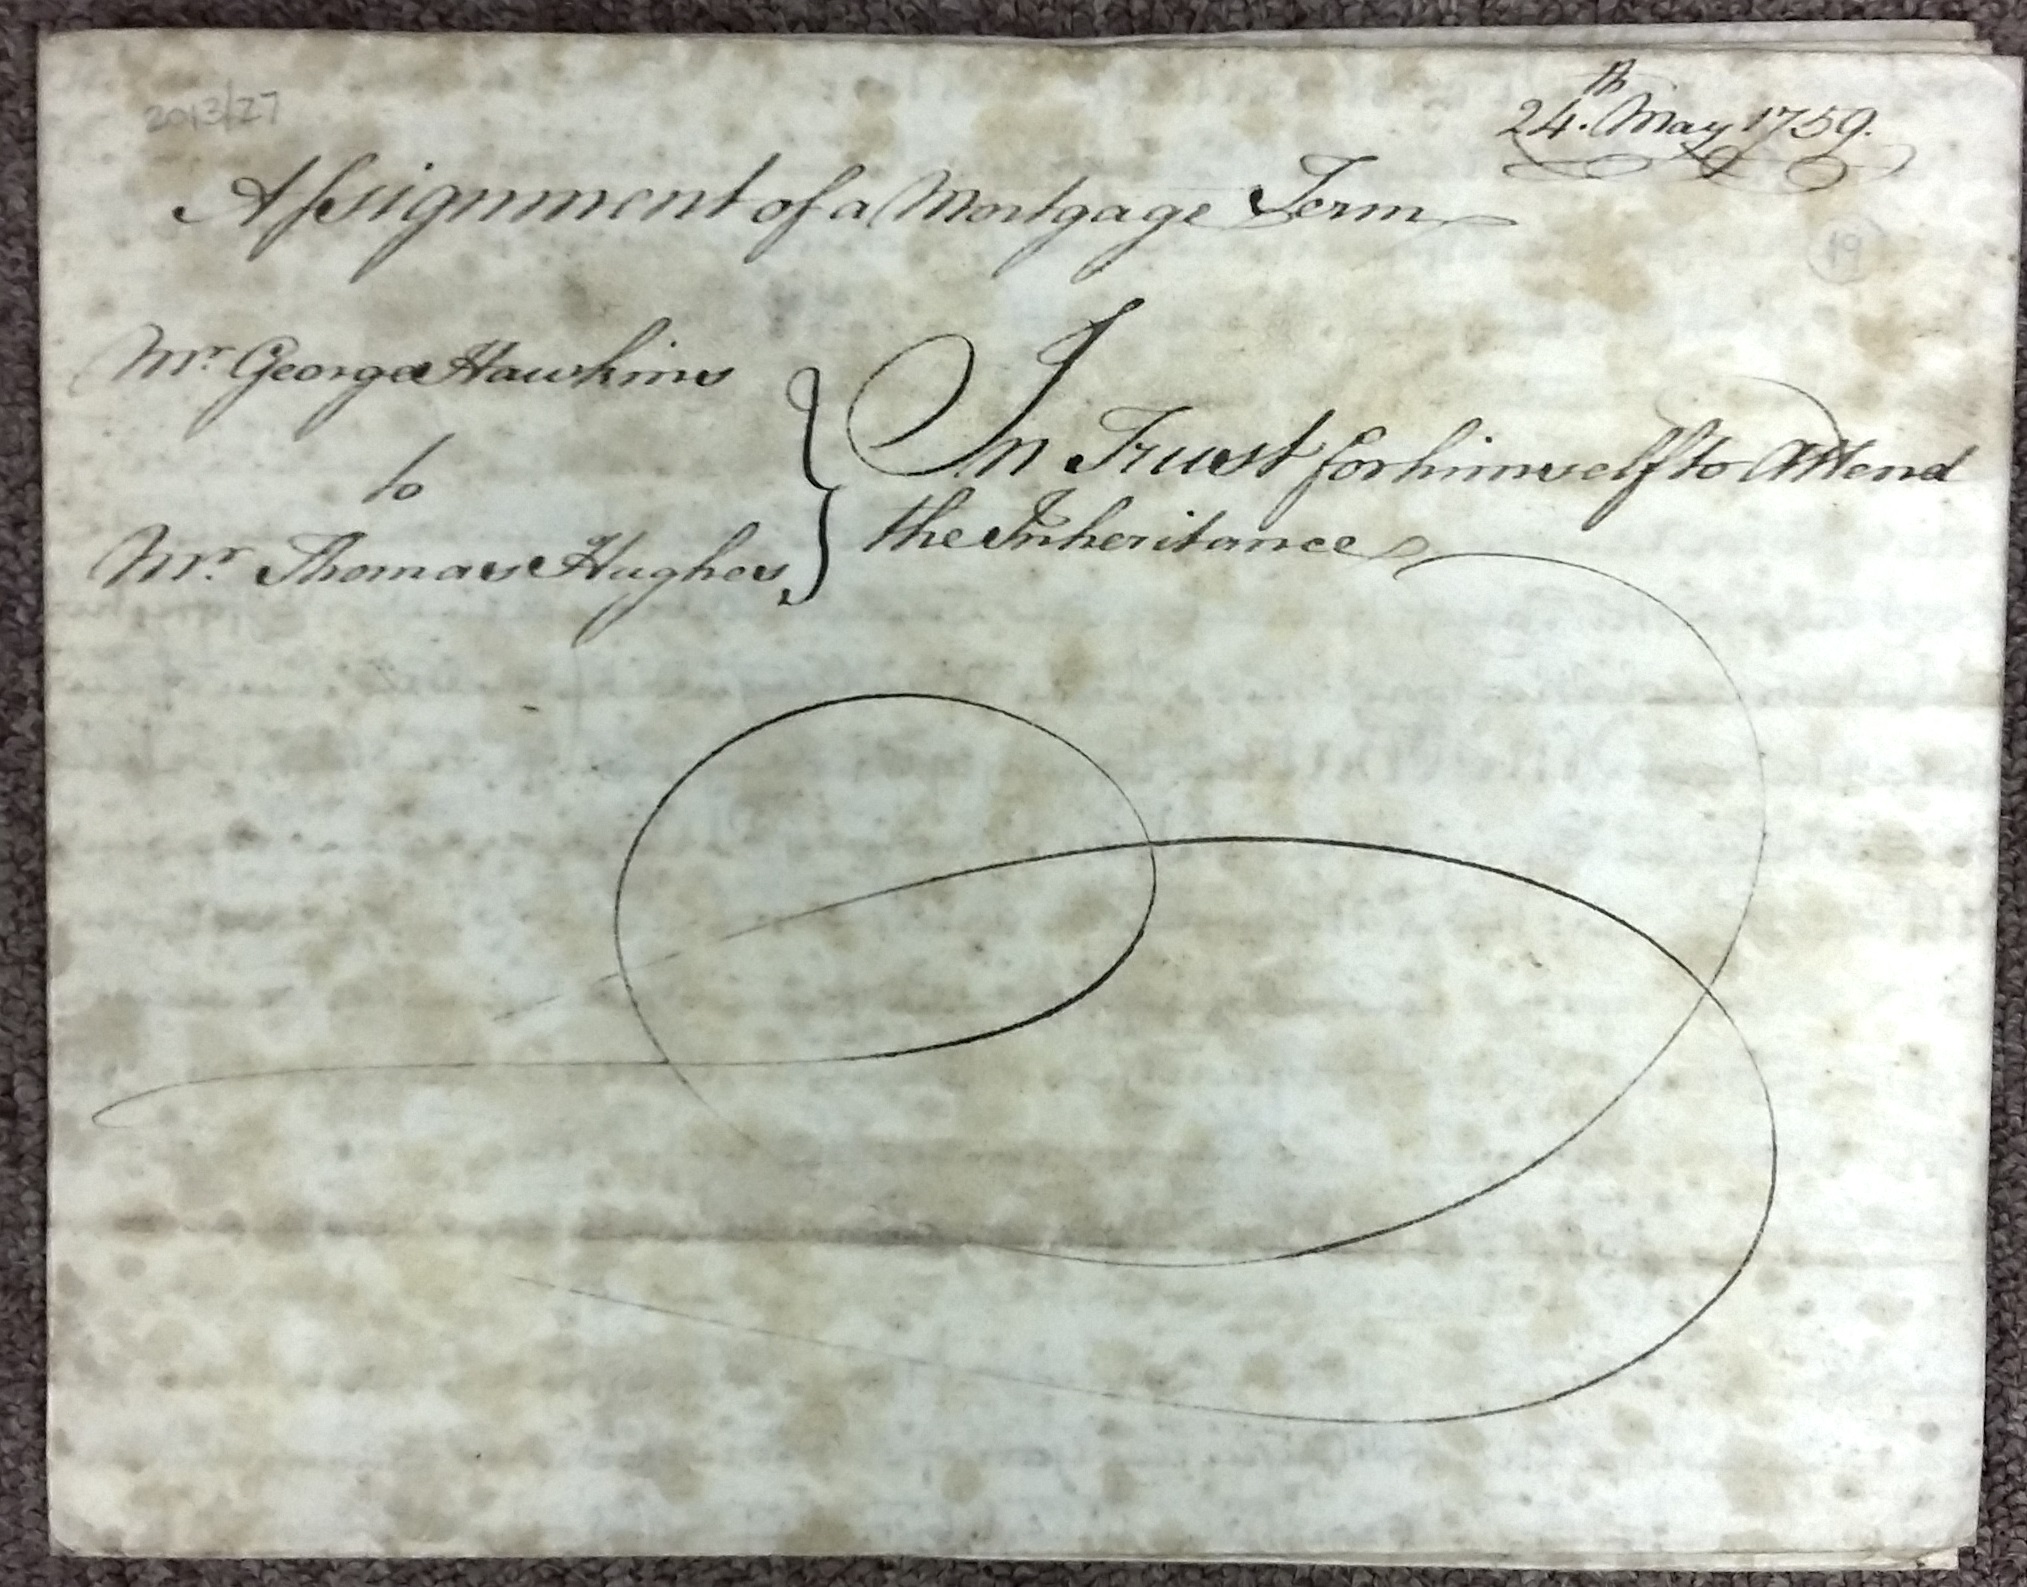 2013/27
24th. May 1759.
Assignment of a Mortgage Term
19
Mr. George Hawkins
to
Mr. Thomas Hughes
In Trust for himself to Attend
the Inheritance